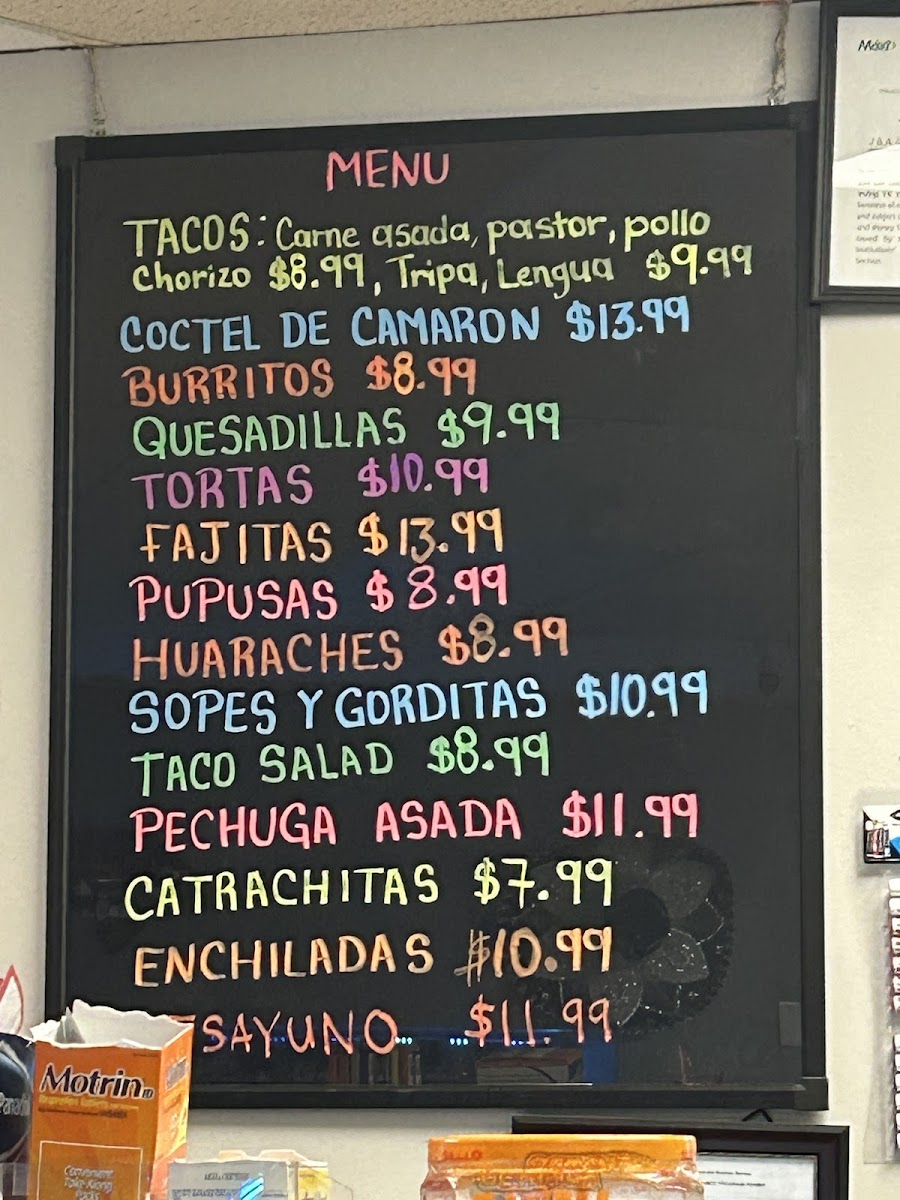 MENU
TACOS: Carne asada, pastor, pollo
Chorizo $8.99, Tripa, Lengua $9.99
COCTEL DE CAMARON $13.99
BURRITOS $8.99
QUESADILLAS $9.99
TORTAS $10.99
FAJITAS $13.99
PUPUSAS $8.99
HUARACHES $8.99
SOPES Y GORDITAS $10.99
TACO SALAD $8.99
PECHUGA ASADA $11.99
CATRACHITAS $7.99
ENCHILADAS $10.99
SAYUNO $11.99
Motrin
Convenient
Take-Along
Packs